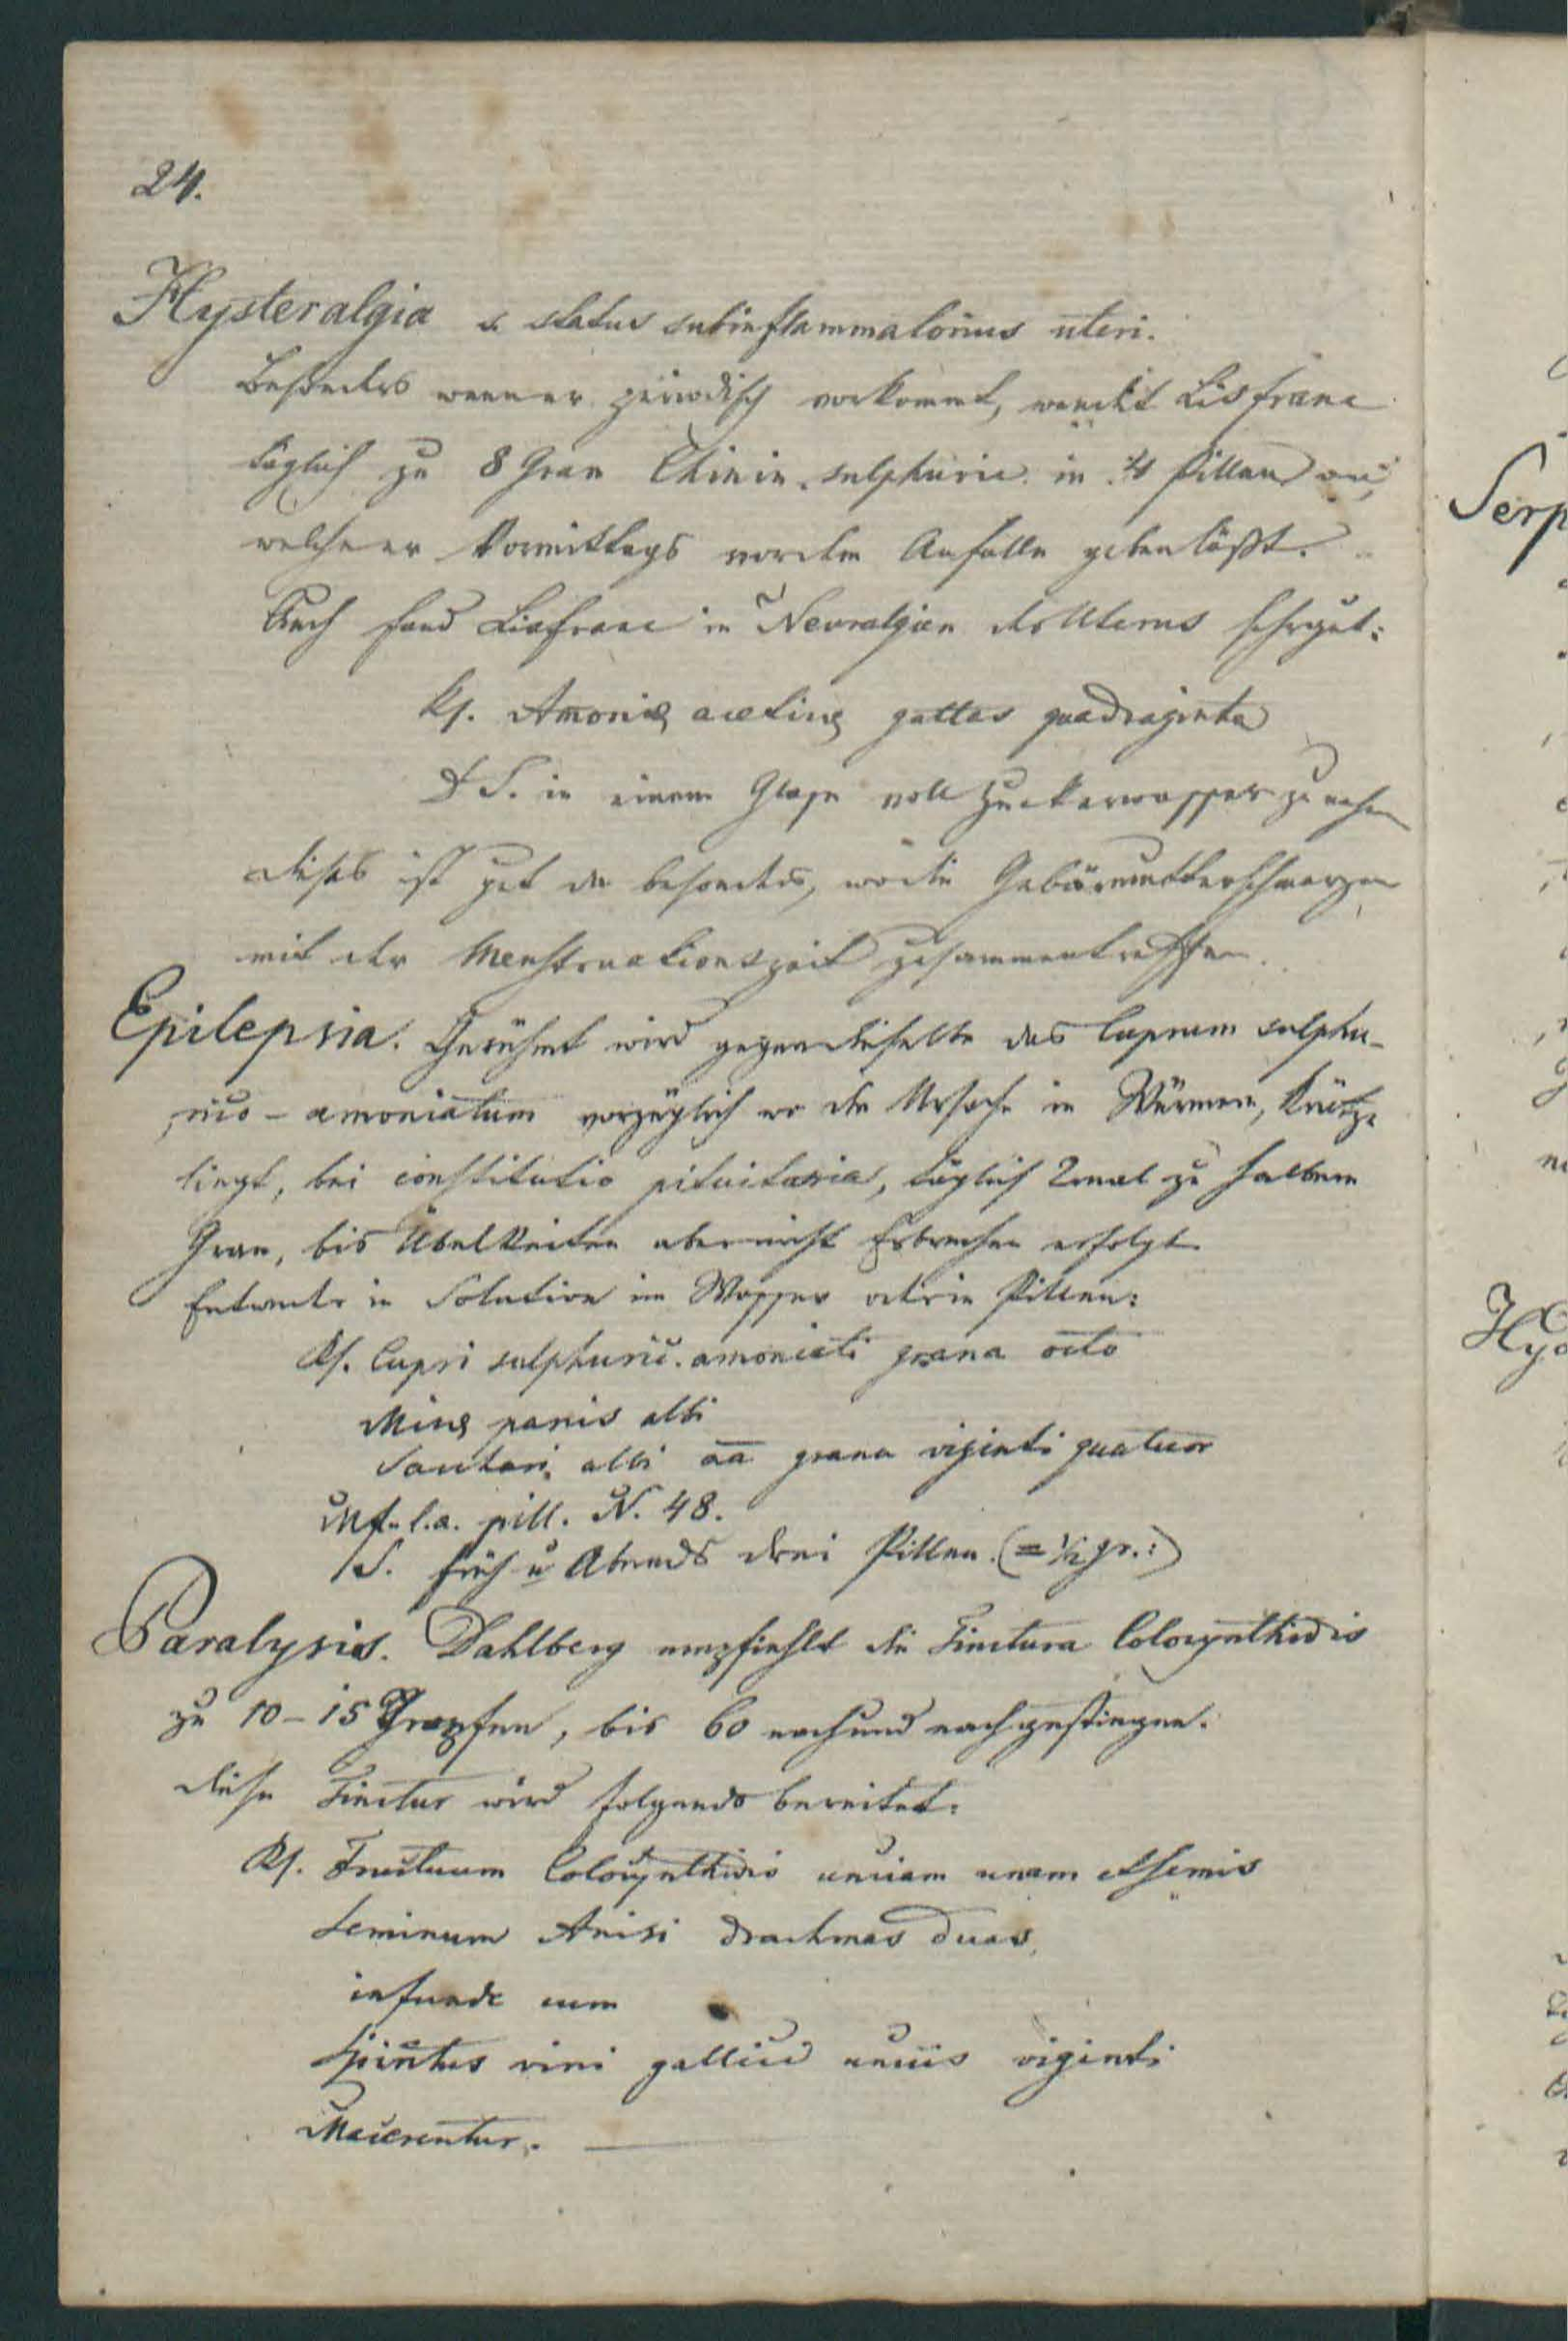 24.
Hysteralgia s. status subinflammatorius uteri.
Besonders wenn er periodisch vorkommt, wendet Lisfranc
täglich zu 8 Gran Chinin. sulphuric. in 4 Pillen an,
welche er Vormittags vor dem Anfalle geben läßt.
Auch fand Lisfranc in Nevralgien des Uterus sehr gut:
Rp. Amoniæ aceticæ guttas quadraginta
D S. in einem Glase voll Zuckerwasser zu nehmen
dieses ist gut da besonders, wo die Gebärmutterschmerzen
mit der Menstruationszeit zusammentreffen.
Epilepsia. Gerühmt wird gegen dieselbe das Cuprum sulphu-
rico-amoniatum vorzüglich wo die Ursache in Würmern, Krätze
liegt, bei constitutio pituitaria, täglich 2mal zu halbem
Gran, bis Übelkeiten aber nicht Erbrechen erfolgt
Entweder in Solution im Wasser oder in Pillen:
Rp. Cupri sulphuric. amoniati grana octo
Micæ panis albi
Sacchari albi aa grana viginti quatuor
Mf. l.a. pill. N. 48.
S. früh u Abends drei Pillen. (= 1/2 gr.:)
Paralysis. Dahlberg empfiehlt die Tinctura Colocynthidis
zu 10-15 Tropfen, bis 60 nach und nach gestiegen.
diese Tinctur wird folgends bereitet:
Rp. Fructuum Colocynthidis unciam unam et semis
Seminum Anisi drachmas duas
infunde cum
Spiritus vini gallici unciis viginti
Macerentur.
Serp
Hyd